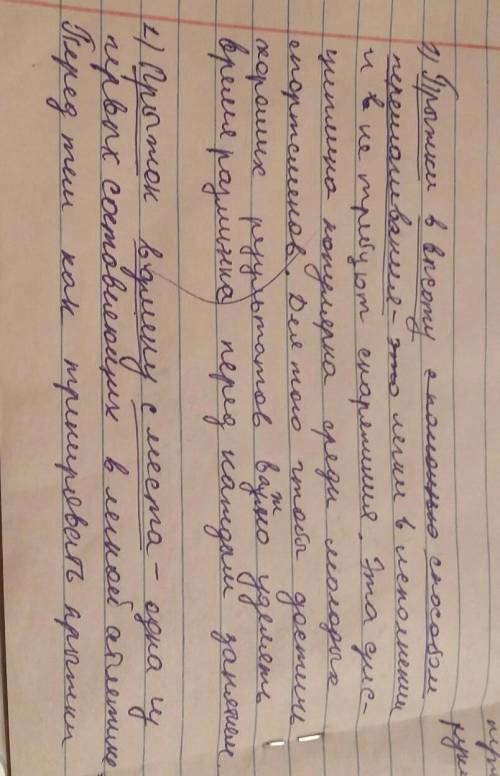 1) Прыжки в высоту с помощью способом
перешагивания - это легки в исполнении
и не требуют снаряжения. Эта дис-
циплина популярна среди молодых
спортсменов. Для того чтобы достичь
хороших результатов важно уделять
время разминка перед каждым занятием.
2) Прыжок в длину с места - одна из
первых составляющих в легкой атлетике
Перед тем как тренировать прыжки